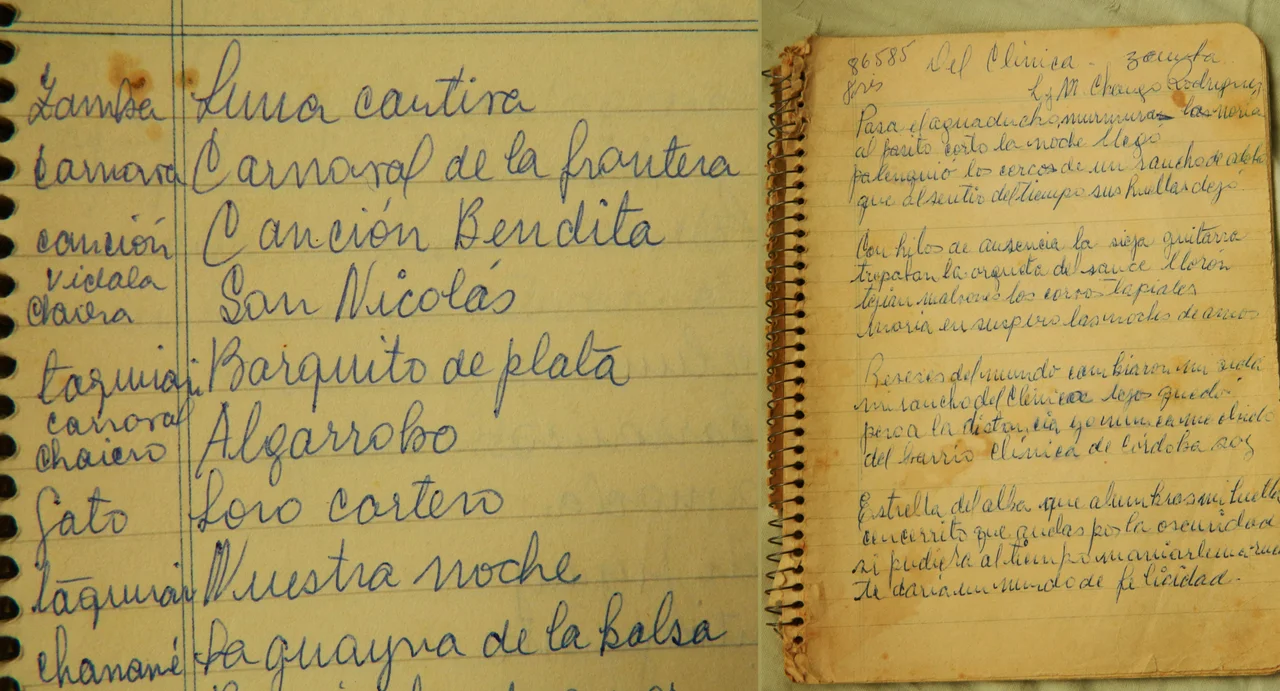 Zamba Luna cautiva
Carnaval Carnaval de la frontera
canción Canción Bendita
Vidala
chaiera San Nicolás
taquirari Barquito de plata
carnaval
chaiero Algarrobo
Gato Loro cartero
taquirari Nuestra noche
chamamé La guayna de la balsa
86585 Del Clínica - zamba
gris L y M. Chango Rodríguez
Pasa el aguaducho, murmuran las noria
al pasito corto la noche llegó
palenquió los cercos de un rancho de
que al sentir del tiempo sus huellas dejó
Con hilos de ausencia la vieja guitarra
trepaban la orqueta de sauce llorón
tejían malvones los corvos tapiales
moría en suspiro las noches de amor
Reveses del mundo cambiaron mi vida
mi rancho del Clínica lejos quedó
pero a la distancia yo nunca me olvido
del barrio Clínica de Córdoba soy
Estrella del alba que alumbras mi huella
concerrito que andas por la oscuridad
si pudiera al tiempo maniarle
te daría un mundo de felicidad.